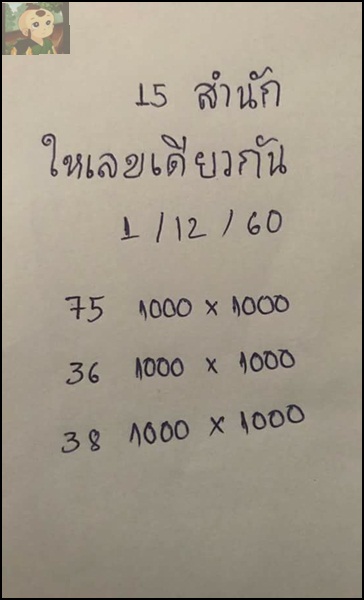 15 สำนัก
ใหเลขเดียวกัน
1/12/60
75 1000 x 1000
36 1000 x 1000
38 1000 x 1000